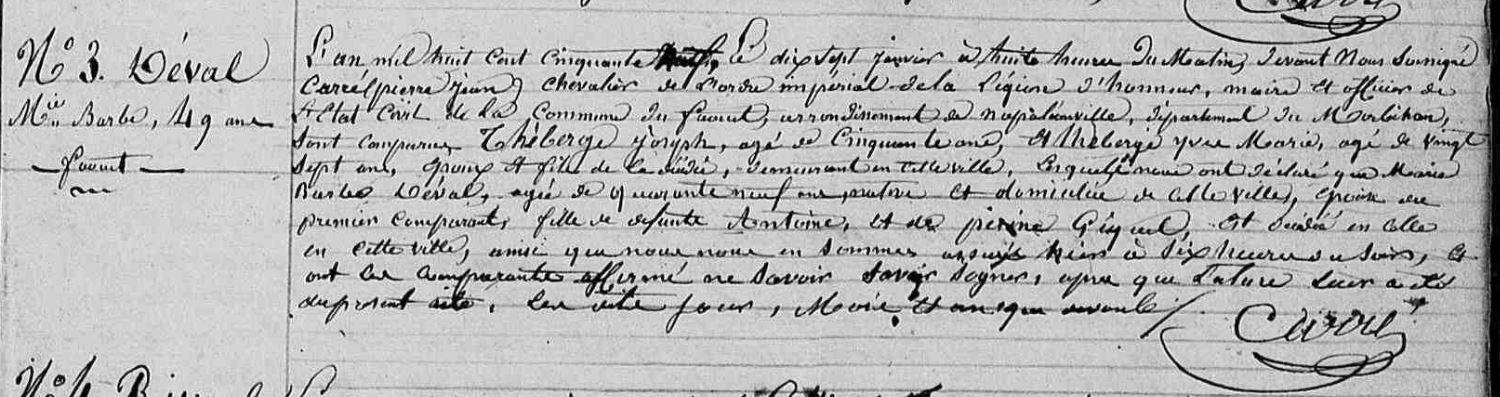 N° 3. Déval
Mie Barbe, 49 ans
faouet
L'an mil huit cent cinquante neuf, Le dix sept janvier à huit heures du Matin, devant Nous Soussigné
Carré (pierre jean) chevalier de l'ordre impérial de la Légion d'honneur, maire et officier de
L'Etat Civil de la Commune du faouet, arrondissement de napoléonville, département du Morbihan,
Sont comparus, Théberge joseph, agé de Cinquante ans, et théberge yves Marie, agé de vingt
Sept ans, époux et fils de la décédée, demeurant en cette ville, lesquels nous ont déclaré que Marie
Barbe Déval, agée de quarante neuf ans, native et domiciliée de cette ville, épouse du
premier comparant, fille de defunte Antoine, et de perine est décédée en celle
en cette ville, ainsi que nous nous en Sommes assuré hier à Six heures du Soir, et
ont les comparants affirmé ne Savoir Savoir Signer, après que lature leur a été
du present acte. Les dits jour, Mois, et an que devant
Carré
N° 4
L